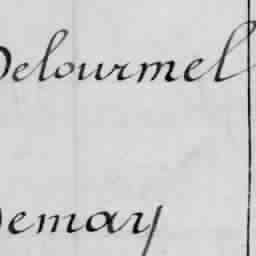 Delourmel
Demay